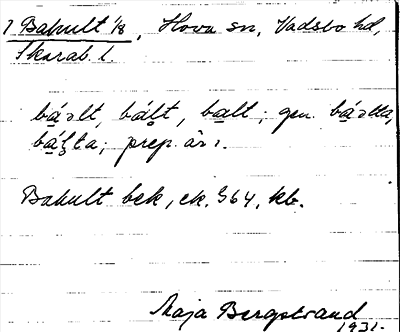 1 Bakult 1/8, Hova sn, Vadsbo hd,
Skarab. l.
bá̱ƨlt, bá̱l̥t, ba̱lt; gen. bá̱ƨlta,
bá̱l̥ta; prep. är i.
Bakult bek, ek. 364, kb.
Maja Bergstrand
1931.